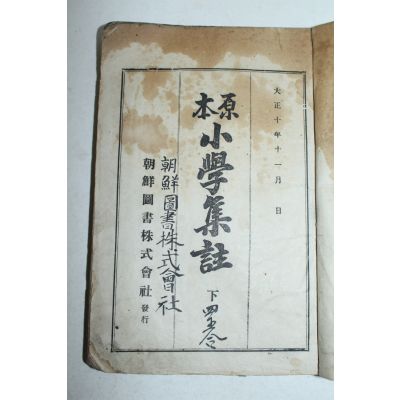 大正十年十一月 日
原本
小學集註
下
朝鮮圖書株式會社
朝鮮圖書株式會社 發行